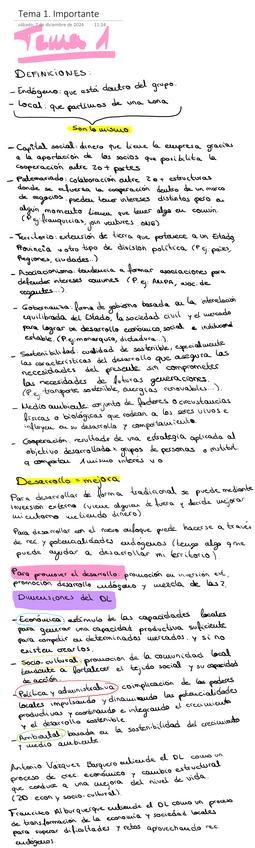 Tema 1. Importante
sábado, 7 de diciembre de 2024 11:24
Tema 1
DEFINICIONES:
- Endógeno: que está dentro del grupo.
- Local: que partimos de una zona
Son lo mismo
- Capital social: dinero que tiene la empresa, gracias
a la aportación de los socios que posibilita la
cooperación entre 2 o + partes
- Partenariado: colaboración entre 2 o + estructuras
donde se refuerza la cooperación dentro de un marco
de negocios, pueden tener intereses distintos pero en
algún momento tienen que tener algo en común.
(P.ej franquicias, join ventures, ONG)
- Territorio: extensión de tierra que pertenece a un Estado,
Provincia u otro tipo de división política, (P.ej países,
Regiones, ciudades..)
- Asociacionismo: tendencia a formar asociaciones para
defender intereses comunes (P.ej AMPA, asoc. de
regantes...)
- Gobernanza: forma de gobierno basada en la interrelación
equilibrada del Estado, la sociedad civil y el mercado
para lograr un desarrollo económico, social e institucional
estable. (P.ej monarquía, dictadura..).
- Sostenibilidad: cualidad de sostenible, especialmente
las características del desarrollo que asegura las
necesidades del presente sin comprometer
las necesidades de futuras generaciones.
(P.ej transporte sostenible, energías renovables...).
- Medio ambiente: conjunto de factores o circunstancias
físicas o biológicas que rodean a los seres vivos e
influyen en su desarrollo y comportamiento.
- Cooperación: resultado de una estrategia aplicada al
objetivo desarrollada x grupos de personas o instituc.
q comparten 1 mismo interés u o
Desarrollo = mejora
Para desarrollar de forma tradicional se puede mediante
inversión externa (viene alguien de fuera y decide mejorar
mi entorno metiendo dinero)
Para desarrollar con el nuevo enfoque puede hacerse a través
de rec. y potencialidades endógenas (tengo algo que
puede ayudar a desarrollar mi territorio)
Para promover el desarrollo: promoción en inversión ext,
promoción desarrollo endógeno y mezcla de las 2.
Dimensiones del DL
- Económica: estímulo de las capacidades locales
para generar una capacidad productiva suficiente
para competir en determinados mercados. y si no
existen crearlos.
- Socio cultural: promoción de la comunidad local
tendente a fortalecer el tejido social y su capacidad
de acción.
- Política y administrativa: complicación de los poderes
locales impulsando y dinamizando las potencialidades
productivas y coordinando e integrando el crecimiento
y el desarrollo sostenible.
- Ambiental: basada en la sostenibilidad del crecimiento
y medio ambiente.
Antonio Vázquez Barquero entiende el DL como un
proceso de crec. económico y cambio estructural
que conduce a una mejora del nivel de vida.
(2D econ y socio-cultural).
Francisco Alburquerque entiende el DL como un proceso
de transformación de la economía y sociedad locales
para superar dificultades y retos aprovechando rec.
endógenos.